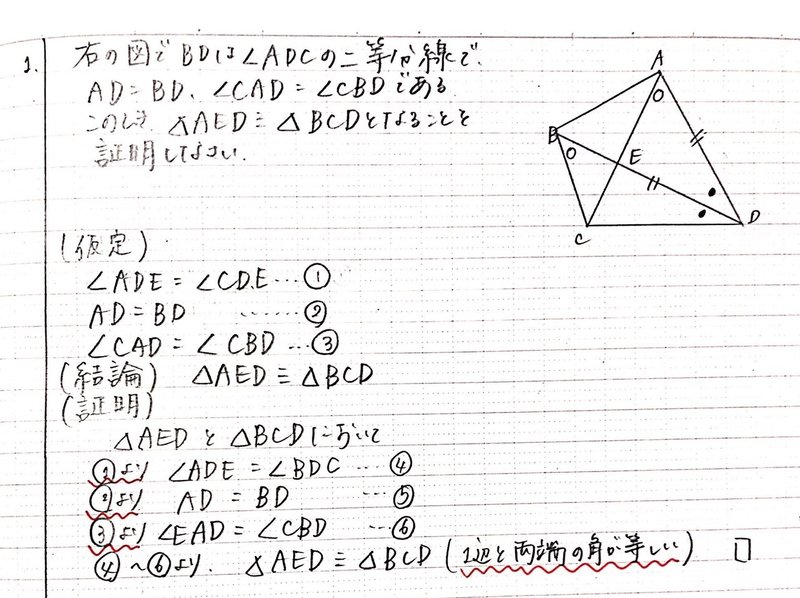 1. 右の図でBDは∠ADCの二等分線で、
AD=BD、∠CAD=∠CBDである
このとき △AED≡△BCDとなることを
証明しなさい.
A
B
C
D
E
(仮定)
∠ADE = ∠CDE … ①
AD = BD …… ②
∠CAD = ∠CBD … ③
(結論) △AED ≡ △BCD
(証明)
△AED と △BCD において
①より ∠ADE = ∠BDC … ④
②より AD = BD … ⑤
③より ∠EAD = ∠CBD … ⑥
④~⑥より. △AED ≡ △BCD (1辺と両端の角が等しい) □